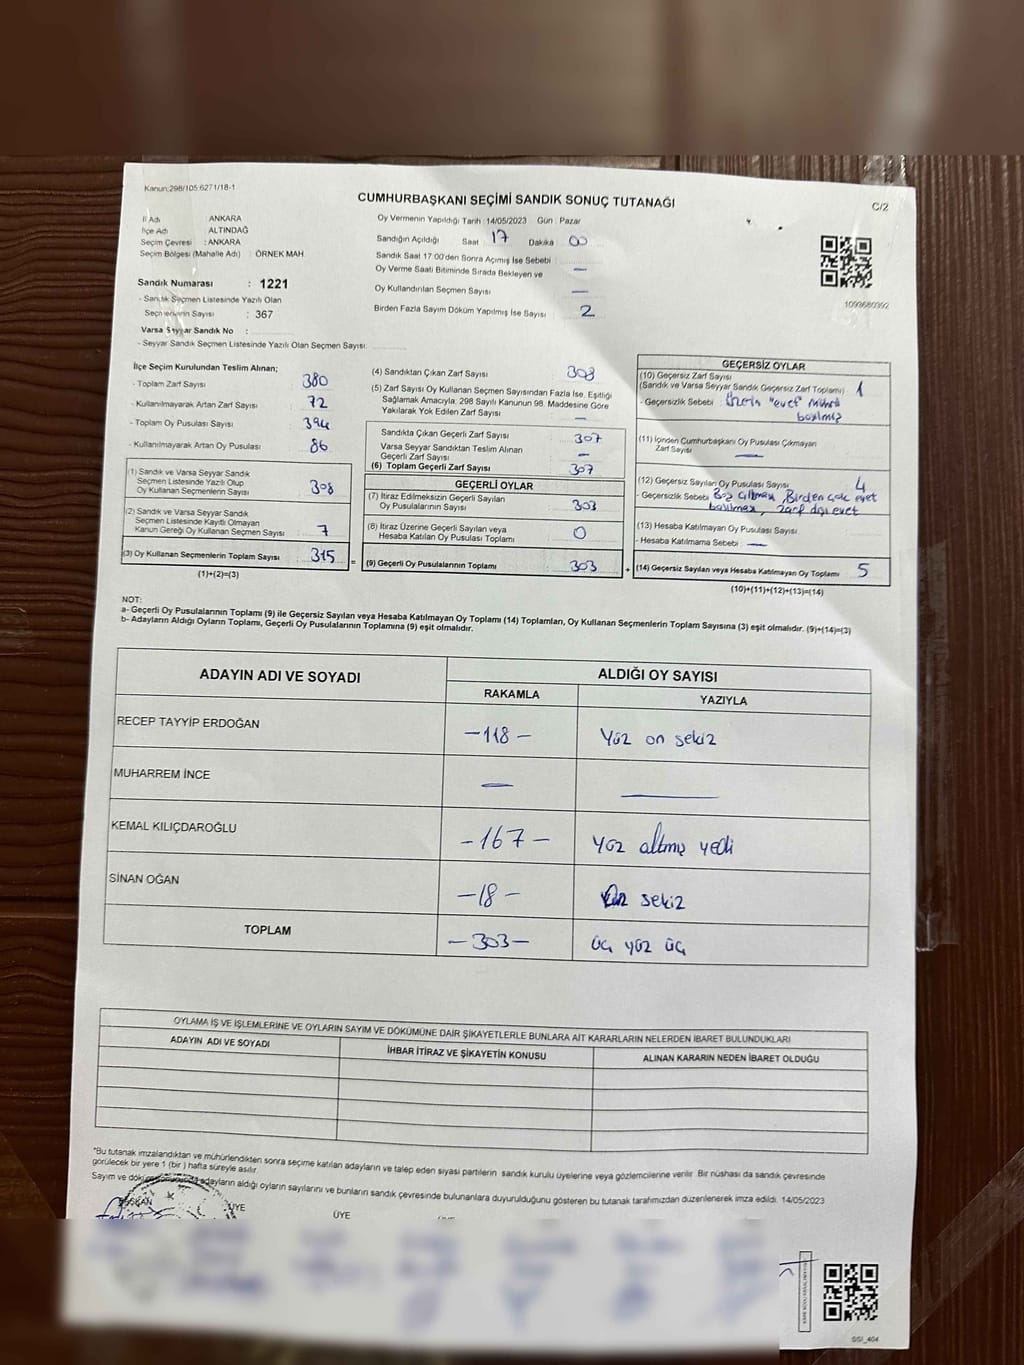 Kanun:298/105;6271/18-1
CUMHURBAŞKANI SEÇİMİ SANDIK SONUÇ TUTANAĞI
C/2
İl Adı ANKARA
İlçe Adı ALTINDAĞ
Seçim Çevresi : ANKARA
Seçim Bölgesi (Mahalle Adı) : ÖRNEK MAH.
Sandık Numarası : 1221
- Sandık Seçmen Listesinde Yazılı Olan
Seçmenlerin Sayısı : 367
Varsa Seyyar Sandık No :
- Seyyar Sandık Seçmen Listesinde Yazılı Olan Seçmen Sayısı:
Oy Vermenin Yapıldığı Tarih :14/05/2023 Gün : Pazar
Sandığın Açıldığı Saat 17 Dakika 00
Sandık Saat 17.00'den Sonra Açılmış İse Sebebi : —
Oy Verme Saati Bitiminde Sırada Bekleyen ve
Oy Kullandırılan Seçmen Sayısı —
Birden Fazla Sayım Döküm Yapılmış İse Sayısı 2
1093680392
İlçe Seçim Kurulundan Teslim Alınan;
- Toplam Zarf Sayısı 380
- Kullanılmayarak Artan Zarf Sayısı : 72
- Toplam Oy Pusulası Sayısı : 394
- Kullanılmayarak Artan Oy Pusulası : 86
(1) Sandık ve Varsa Seyyar Sandık
Seçmen Listesinde Yazılı Olup
Oy Kullanan Seçmenlerin Sayısı 308
(2) Sandık ve Varsa Seyyar Sandık
Seçmen Listesinde Kayıtlı Olmayan
Kanun Gereği Oy Kullanan Seçmen Sayısı : 7
(3) Oy Kullanan Seçmenlerin Toplam Sayısı 315
(1)+(2)=(3)
(4) Sandıktan Çıkan Zarf Sayısı 308
(5) Zarf Sayısı Oy Kullanan Seçmen Sayısından Fazla İse, Eşitliği
Sağlamak Amacıyla; 298 Sayılı Kanunun 98. Maddesine Göre
Yakılarak Yok Edilen Zarf Sayısı —
Sandıkta Çıkan Geçerli Zarf Sayısı 307
Varsa Seyyar Sandıktan Teslim Alınan
Geçerli Zarf Sayısı —
(6) Toplam Geçerli Zarf Sayısı 307
GEÇERLİ OYLAR
(7) İtiraz Edilmeksizin Geçerli Sayılan
Oy Pusulalarının Sayısı 303
(8) İtiraz Üzerine Geçerli Sayılan veya
Hesaba Katılan Oy Pusulası Toplamı 0
= (9) Geçerli Oy Pusulalarının Toplamı 303
GEÇERSİZ OYLAR
(10) Geçersiz Zarf Sayısı
(Sandık ve Varsa Seyyar Sandık Geçersiz Zarf Toplamı) 1
- Geçersizlik Sebebi : "evet"
(11) İçinden Cumhurbaşkanı Oy Pusulası Çıkmayan
Zarf Sayısı —
(12) Geçersiz Sayılan Oy Pusulası Sayısı 4
- Geçersizlik Sebebi Birden çok evet
(13) Hesaba Katılmayan Oy Pusulası Sayısı
- Hesaba Katılmama Sebebi : —
+ (14) Geçersiz Sayılan veya Hesaba Katılmayan Oy Toplamı 5
(10)+(11)+(12)+(13)=(14)
NOT:
a- Geçerli Oy Pusulalarının Toplamı (9) ile Geçersiz Sayılan veya Hesaba Katılmayan Oy Toplamı (14) Toplamları, Oy Kullanan Seçmenlerin Toplam Sayısına (3) eşit olmalıdır. (9)+(14)=(3)
b- Adayların Aldığı Oyların Toplamı, Geçerli Oy Pusulalarının Toplamına (9) eşit olmalıdır.
ADAYIN ADI VE SOYADI ALDIĞI OY SAYISI
RAKAMLA YAZIYLA
RECEP TAYYİP ERDOĞAN -118- Yüz on sekiz
MUHARREM İNCE — —
KEMAL KILIÇDAROĞLU -167- Yüz altmış yedi
SİNAN OĞAN -18- On sekiz
TOPLAM -303- üç yüz üç
OYLAMA İŞ VE İŞLEMLERİNE VE OYLARIN SAYIM VE DÖKÜMÜNE DAİR ŞİKAYETLERLE BUNLARA AİT KARARLARIN NELERDEN İBARET BULUNDUKLARI
ADAYIN ADI VE SOYADI İHBAR İTİRAZ VE ŞİKAYETİN KONUSU ALINAN KARARIN NEDEN İBARET OLDUĞU
*Bu tutanak imzalandıktan ve mühürlendikten sonra seçime katılan adayların ve talep eden siyasi partilerin sandık kurulu üyelerine veya gözlemcilerine verilir. Bir nüshası da sandık çevresinde
görülecek bir yere 1 (bir) hafta süreyle asılır.
Sayım ve döküm adayların aldığı oyların sayılarını ve bunların sandık çevresinde bulunanlara duyurulduğunu gösteren bu tutanak tarafımızdan düzenlenerek imza edildi. 14/05/2023
BAŞKAN ÜYE ÜYE
SSI_404